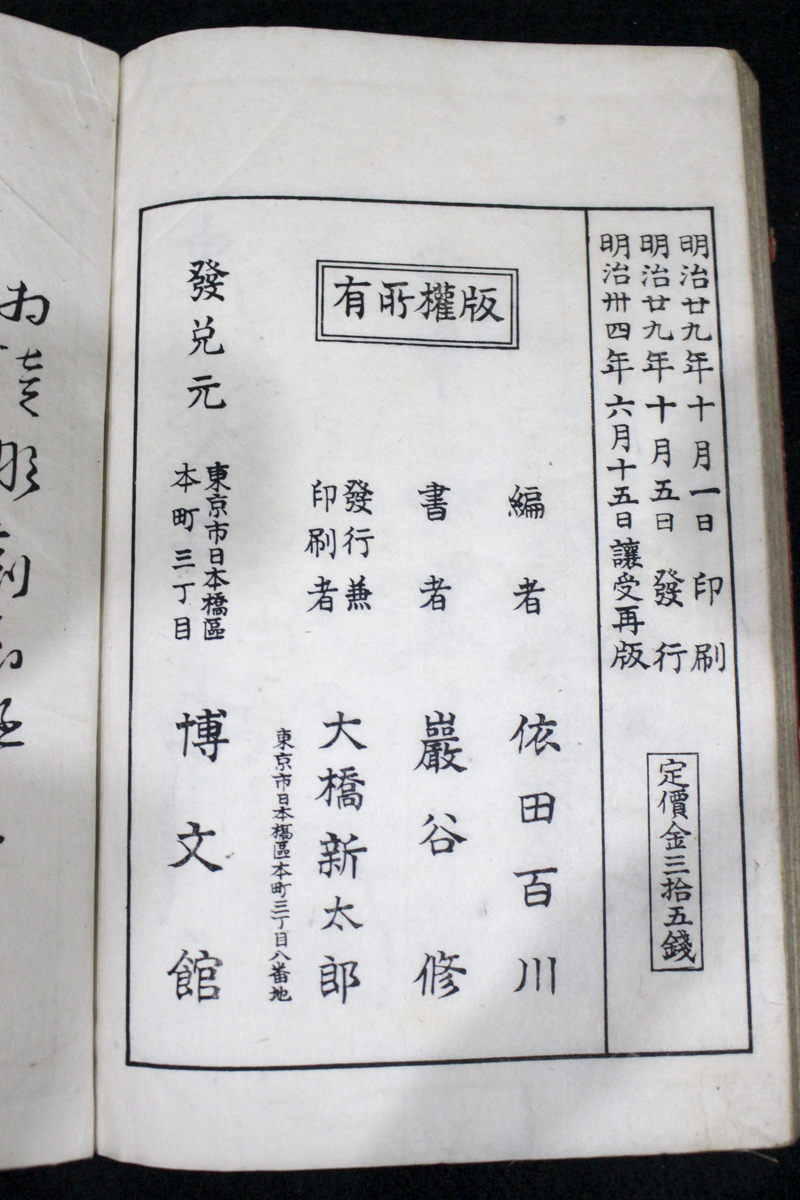 明治廿九年十月一日印刷
明治廿九年十月五日發行
明治卅四年六月十五日讓受再版
定價金三拾五錢
版權所有
編者 依田百川
書者 巖谷修
發行兼
印刷者 大橋新太郎
東京市日本橋區本町三丁目八番地
發兌元
東京市日本橋區
本町三丁目
博文館